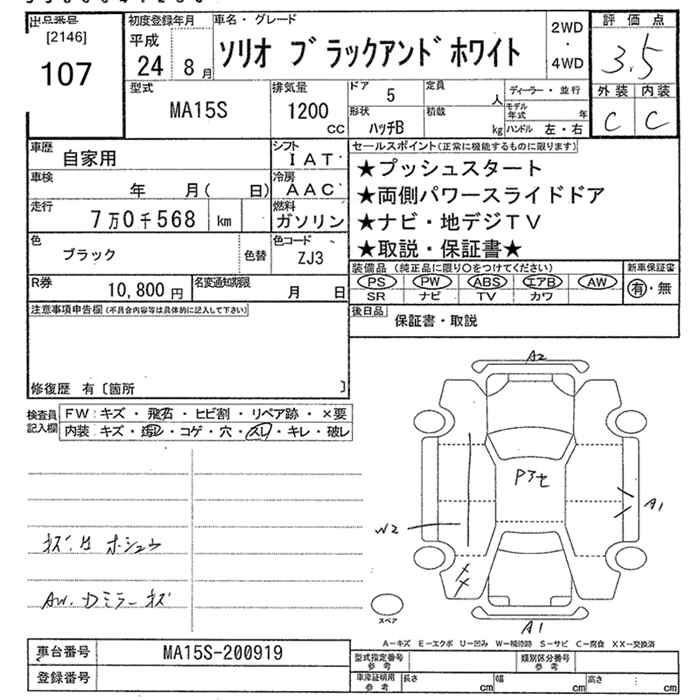 出品番号
[2146]
107
初度登録年月
平成
24 8月
車名・グレード
ソリオ ブラックアンドホワイト
2WD
・
4WD
評価点
3.5
外装 内装
C C
型式
MA15S
排気量
1200
CC
ドア 5
形状
ハッチB
定員
人
積載
kg
ディーラー・並行
モデル年式 年
ハンドル 左・右
車歴
自家用
シフト
IAT
車検
年 月( 日)
冷房
AAC
走行
7万0千568 km
燃料
ガソリン
色
ブラック
色替
色コード
ZJ3
R券
10,800円
名変通知期限
月 日
セールスポイント(正常に機能するものに限ります)
★プッシュスタート
★両側パワースライドドア
★ナビ・地デジTV
★取説・保証書★
装備品 (純正品に限り○をつけてください)
PS PW ABS エアB AW
SR ナビ TV カワ
新車保証書
有・無
後日品
保証書・取説
注意事項申告欄(不具合内容等は具体的に記入して下さい)
修復歴 有〔箇所 〕
検査員記入欄
FW:キズ・飛石・ヒビ割・リペア跡・×要
内装:キズ・・コゲ・穴・スレ・キレ・破レ
キズ、
AW、Dミラーキズ
A2
Pアセ
W2
A1
XX
A1
スペア
A－キズ E－エクボ U－凹み W－補修跡 S－サビ C－腐食 XX－交換済
車台番号
MA15S-200919
登録番号
型式指定番号
参考
類別区分番号
参考
車庫証明用
参考
長さ cm
幅 cm
高さ cm